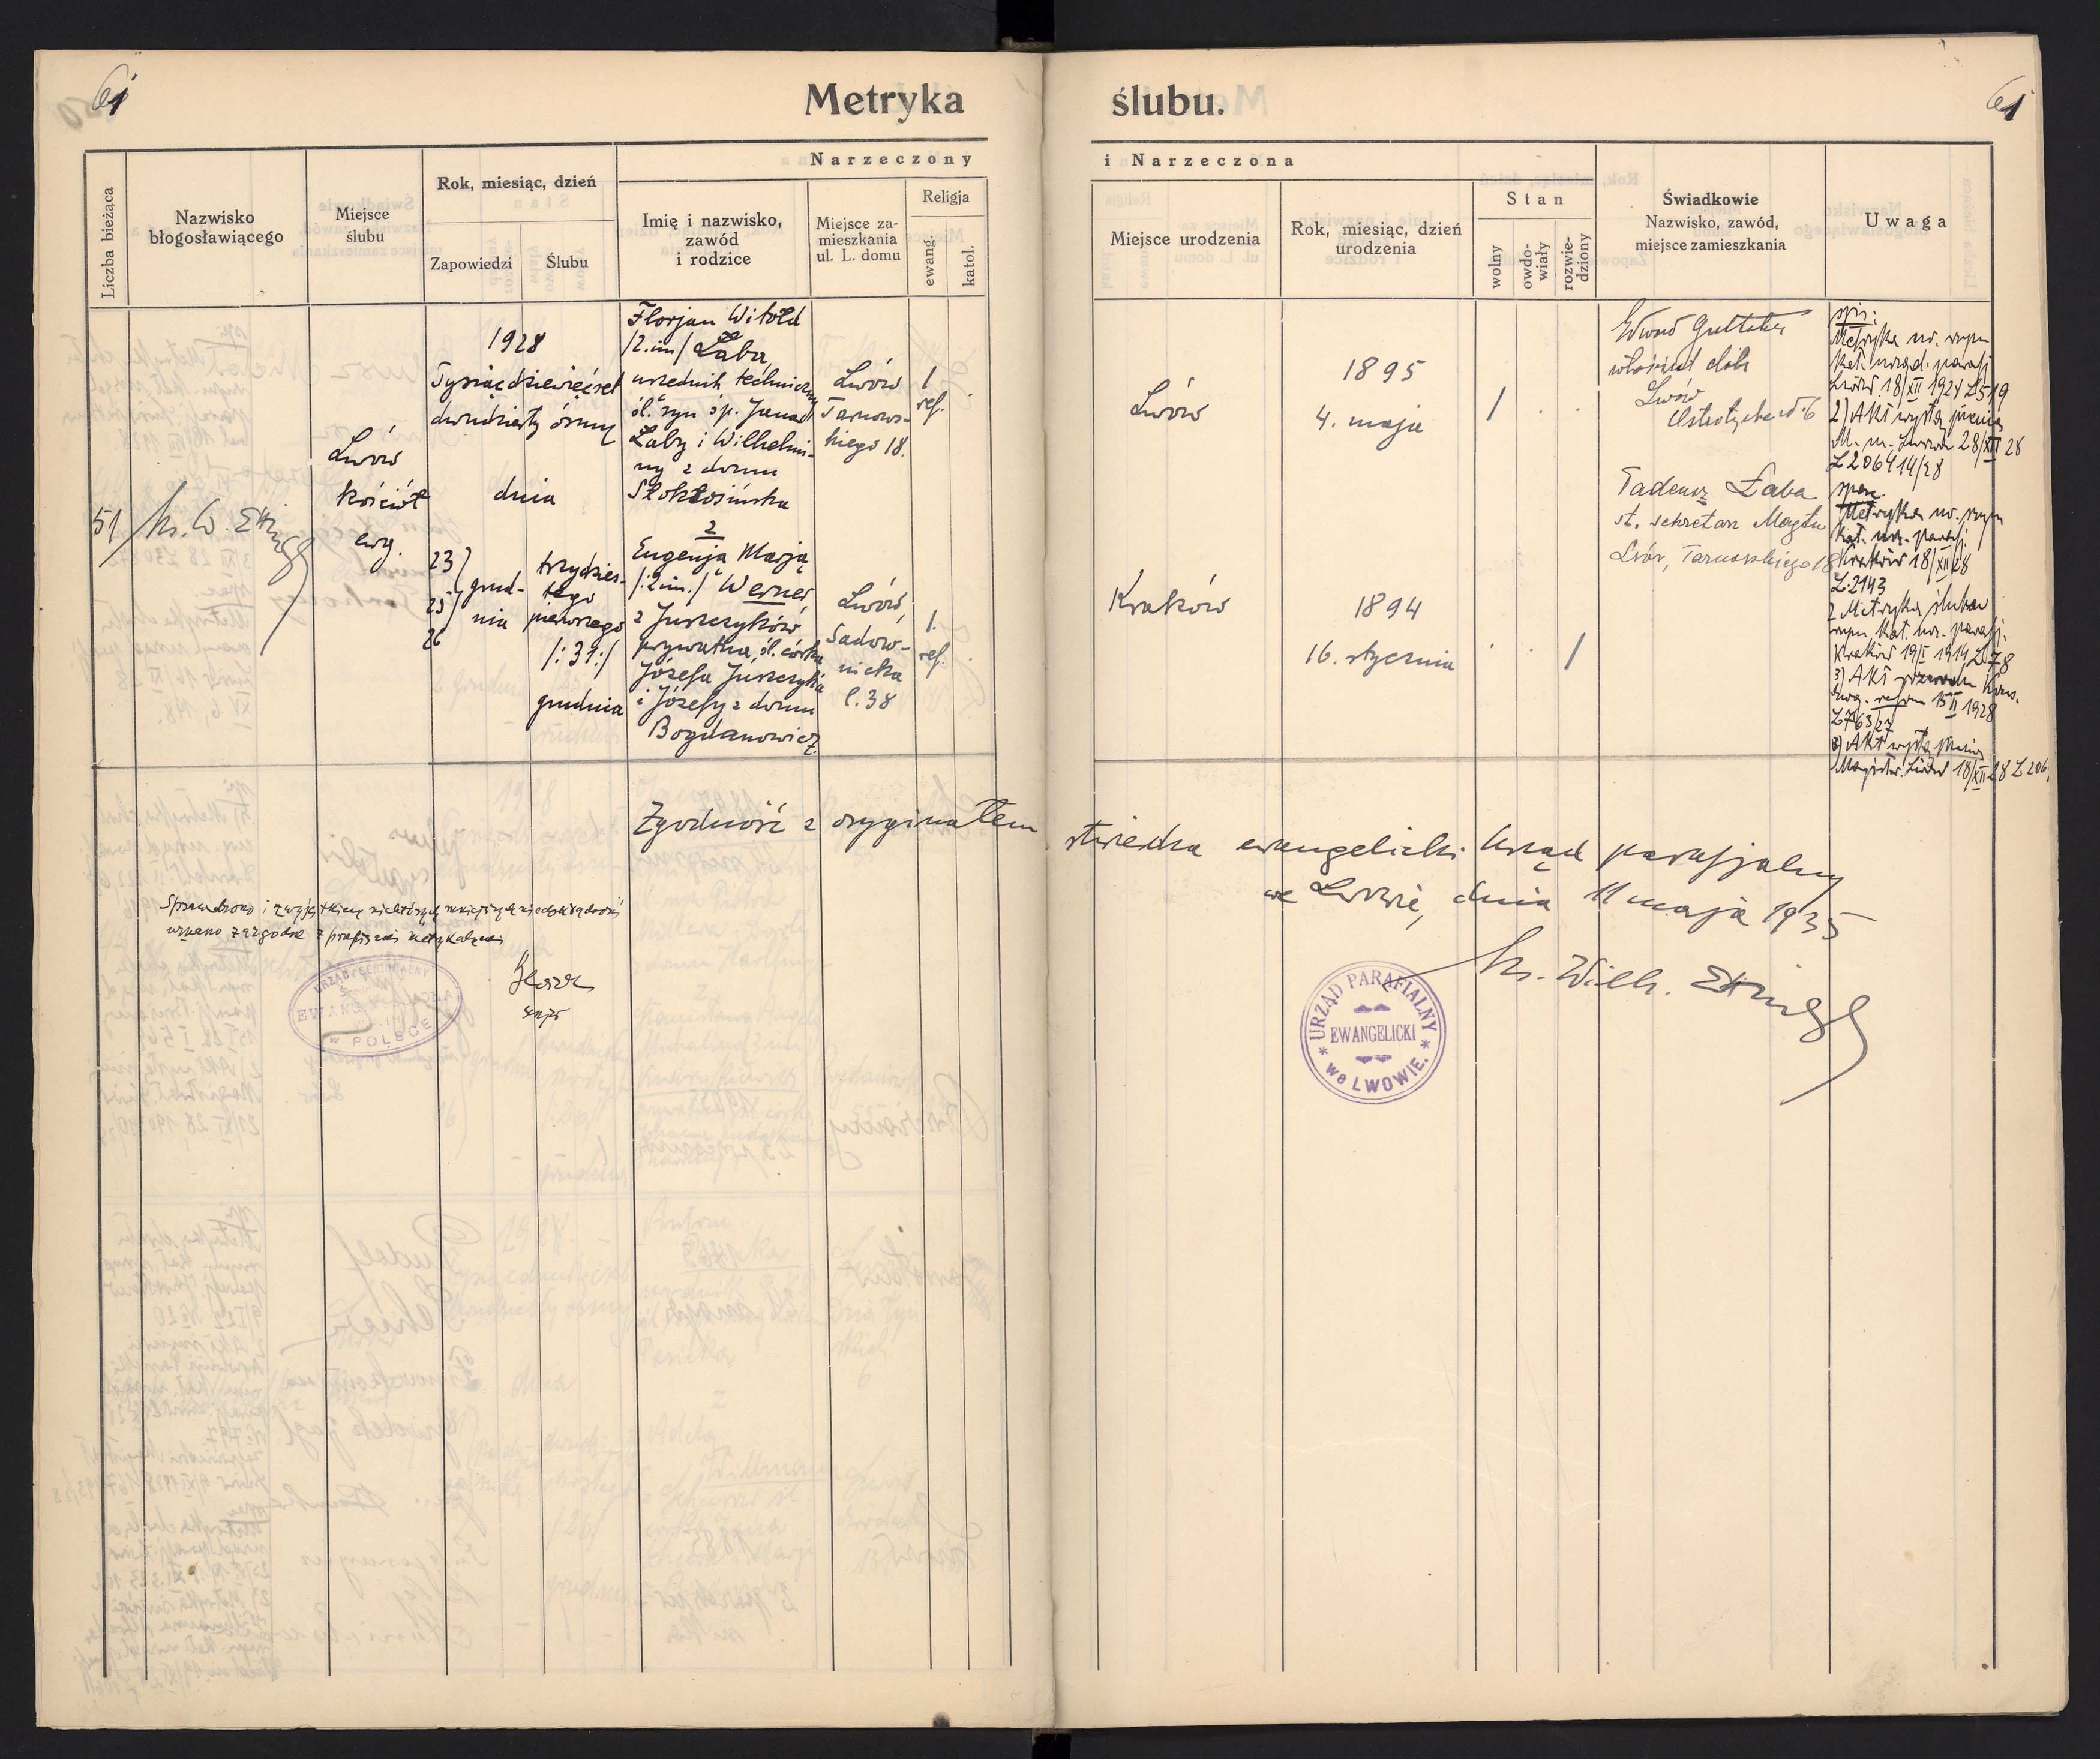 61
Metryka ślubu.
61
Liczba bieżąca
Nazwisko
błogosławiącego
Miejsce
ślubu
Rok, miesiąc, dzień
Zapowiedzi
Ślubu
Narzeczony
Imię i nazwisko,
zawód
i rodzice
Miejsce za-
mieszkania
ul. L. domu
Religja
ewang.
katol.
i Narzeczona
Miejsce urodzenia
Rok, miesiąc, dzień
urodzenia
Stan
wolny
owdo-
wiały
rozwie-
dziony
Świadkowie
Nazwisko, zawód,
miejsce zamieszkania
Uwaga
51
ks. W. Ettinger
Lwów
kościół
ewg.
1928
Tysiąc dziewięćset
dwudziesty ósmy
dnia
23)
25)
26
grud-
nia
trzydzies-
tego
pierwszego
/:31:/
grudnia
Florjan Witold
/2.im/ Łaba
urzędnik techniczny
śl. syn śp. Jana
Łaby i Wilhelmi-
ny z domu
Słoktosińska
z
Eugenja Marja
/:2im./ Werner
z Juszczyków
prywatna, śl. córka
Józefa Juszczyka
i Józefy z domu
Bogdanowicz.
Lwów
Tarnows-
kiego 18.
1
ref.
Lwów
Sadow-
nicka
l.38
1.
ref.
Lwów
1895
4. maja
/
Kraków
1894
16. stycznia
/
właściciel dóbr
Lwów
Tadeusz Łaba
st. sekretarz Magtu
Lwów, Tarnowskiego 18
Metryka ur. rzym
kat. urząd. parafj
Lwów 18/XII 1928 L 519
2) Akt wystąpienia
M. m. Lwowa 28/XII 28
L 206414/28
Metryka ur. rzym
kat. urz. parafj.
Kraków 18/XII 28
L:2143
2 Metryka ślubu
rzym. kat. urz. parafj.
Kraków 19/I 1914 L 78
3) Akt rozwodu Kons.
Ewg. reform 15 II 1928
L 763/27
3) Akt wystąpienia
Magistr. Lwów 18/XII 28 L 206
Zgodność z oryginałem stwierdza ewangelicki Urząd parafjalny
we Lwowie, dnia 11 maja 1935
Ks. Wilh. Ettinger
Sprawdzono i z wyjątkiem niektórych mniejszych niedokładności
uznano za zgodne z przepisami metrykalnymi
EWANG
w POLSCE
URZĄD PARAFIALNY
EWANGELICKI
* we LWOWIE. *